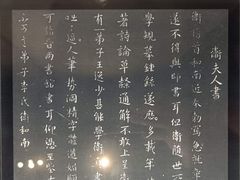 衛夫人書
衛稽首和南近奉勅寫急就章
遂不得與師書耳但衛隨世
學規摹鍾繇遂歷多載年
著詩論草隸通解不敢上呈
有一弟子王逸少甚能學衛真
咄咄逼人筆勢洞精字體遒媚
可詣晉尚書館書耳仰憑至鑒
不可言弟子李氏衛和南